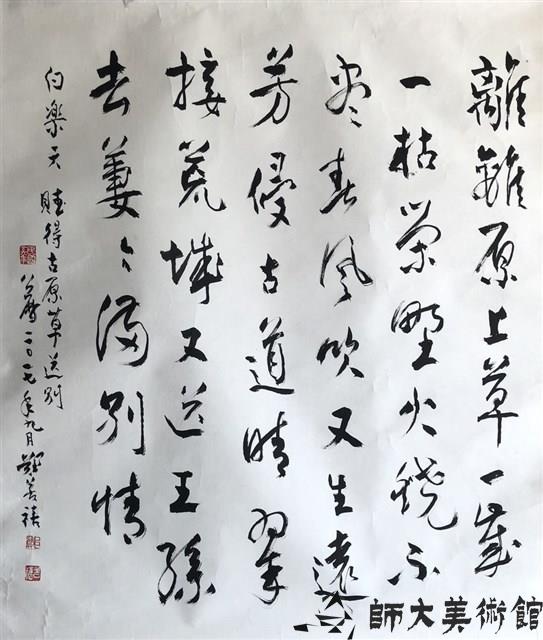 離離原上草一歲
一枯榮野火燒不
盡春風吹又生遠
芳侵古道晴翠
接荒城又送王孫
去萋々滿別情
白樂天 賦得古原草送別
公曆二〇一七年九月 鄭善禧
師大美術館